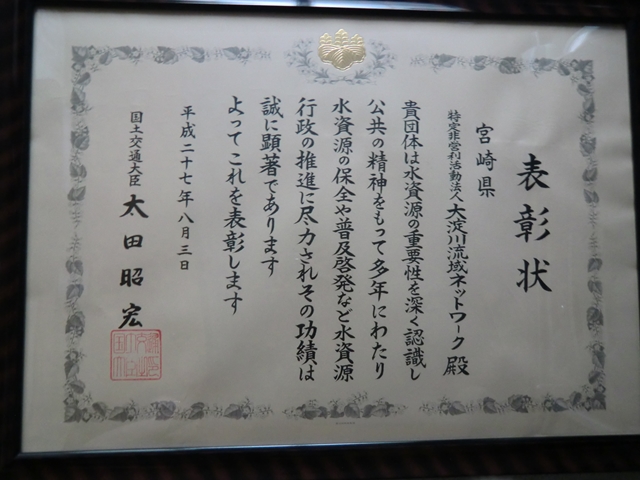 表彰状
宮崎県
特定非営利活動法人 大淀川流域ネットワーク 殿
貴団体は水資源の重要性を深く認識し
公共の精神をもって多年にわたり
水資源の保全や普及啓発など水資源
行政の推進に尽力されその功績は
誠に顕著であります
よってこれを表彰します
平成二十七年八月三日
国土交通大臣 太田昭宏